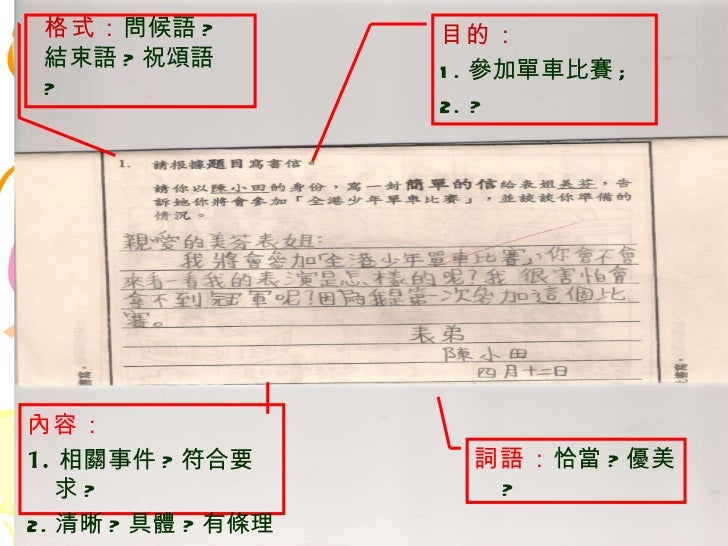 格式：問候語?
結束語?祝頌語
?
目的：
1. 參加單車比賽;
2. ?
1. 請根據題目寫書信。
請你以陳小田的身份，寫一封簡單的信給表姐美芬，告
訴她你將會參加「全港少年單車比賽」，並談談你準備的
情況。
親愛的美芬表姐:
我將會參加「全港少年單車比賽」,你會不會
來看一看我的表演是怎樣的呢?我很害怕會
拿不到冠軍呢!因為我是第一次參加這個比
賽。
表弟
陳小田
四月十二日
內容：
1. 相關事件?符合要
求?
2. 清晰?具體?有條理
詞語：恰當?優美
?